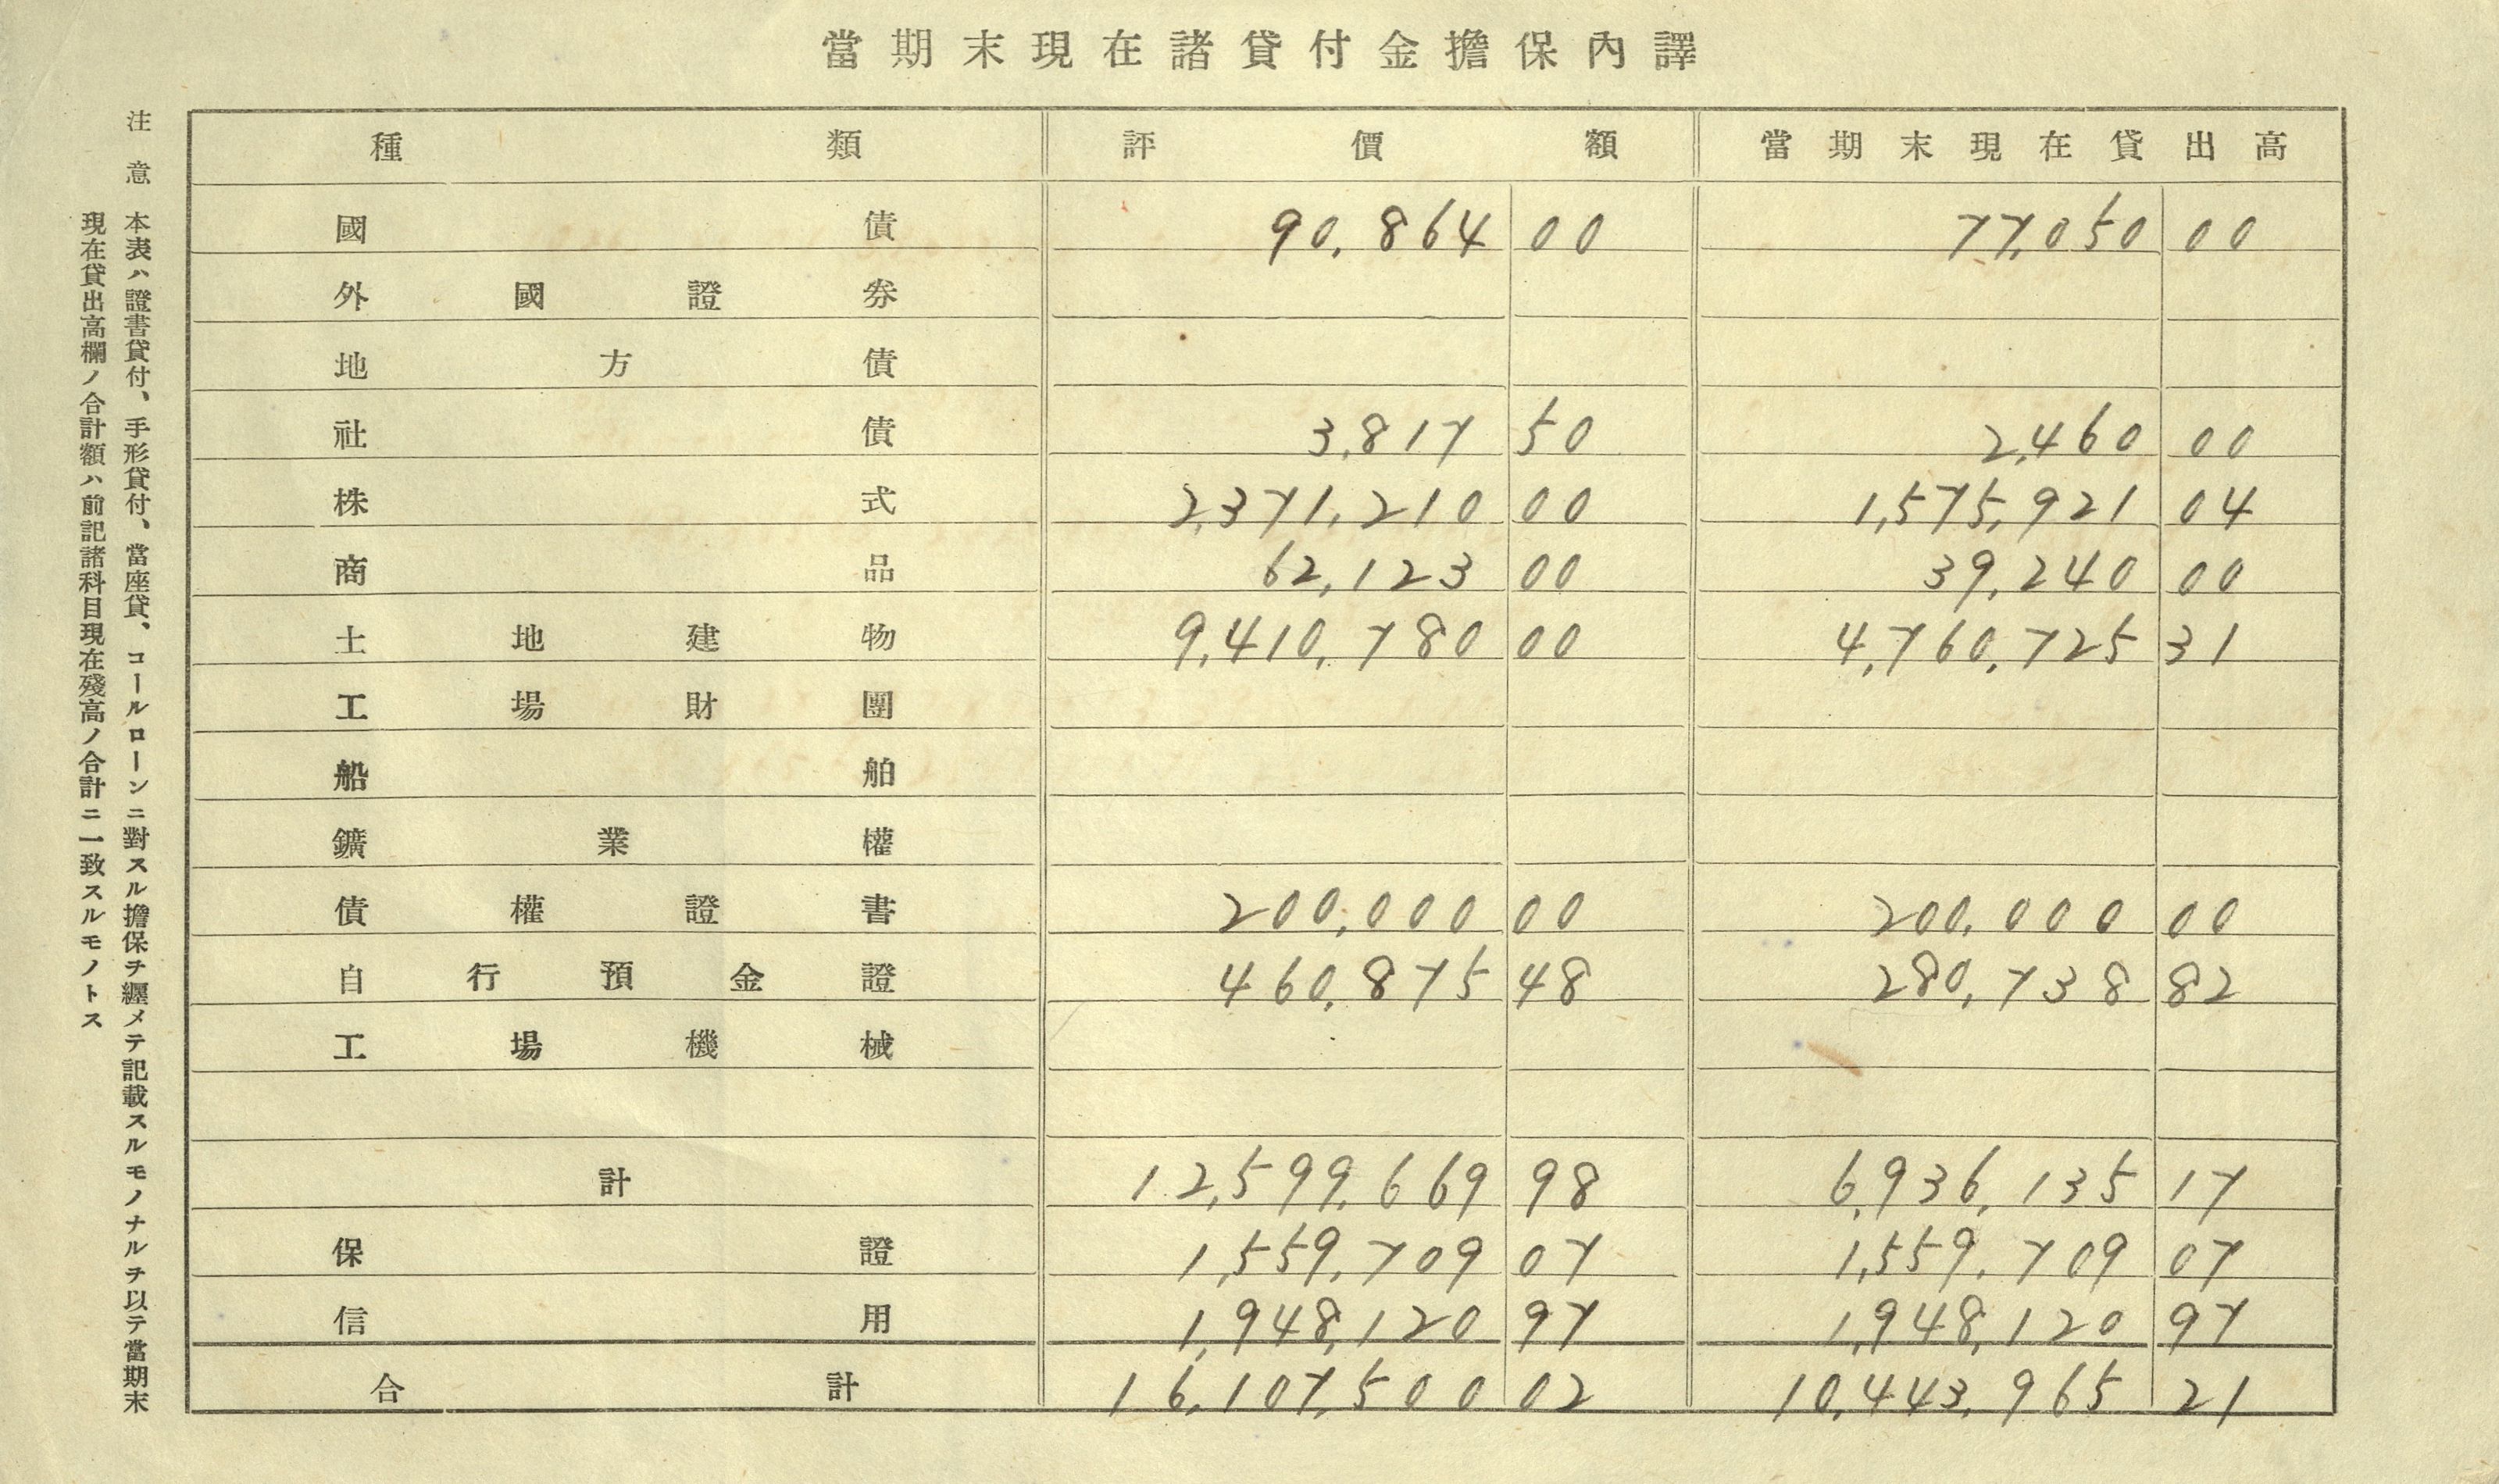 當期末現在諸貸付金擔保內譯
種類 評價額 當期末現在貸出高
國債 90,864 00 77,050 00
外國證券
地方債
社債 3,817 50 2,460 00
株式 2,371,210 00 1,575,921 04
商品 62,123 00 39,240 00
土地建物 9,410,780 00 4,760,725 31
工場財團
船舶
鑛業權
債權證書 200,000 00 200,000 00
自行預金證 460,875 48 280,738 82
工場機械
計 12,599,669 98 6,936,135 17
保證 1,559,709 07 1,559,709 07
信用 1,948,120 97 1,948,120 97
合計 16,107,500 02 10,443,965 21
注意 本表ハ證書貸付、手形貸付、當座貸、コールローンニ對スル擔保ヲ纒メテ記載スルモノナルヲ以テ當期末
現在貸出高欄ノ合計額ハ前記諸科目現在殘高ノ合計ニ一致スルモノトス